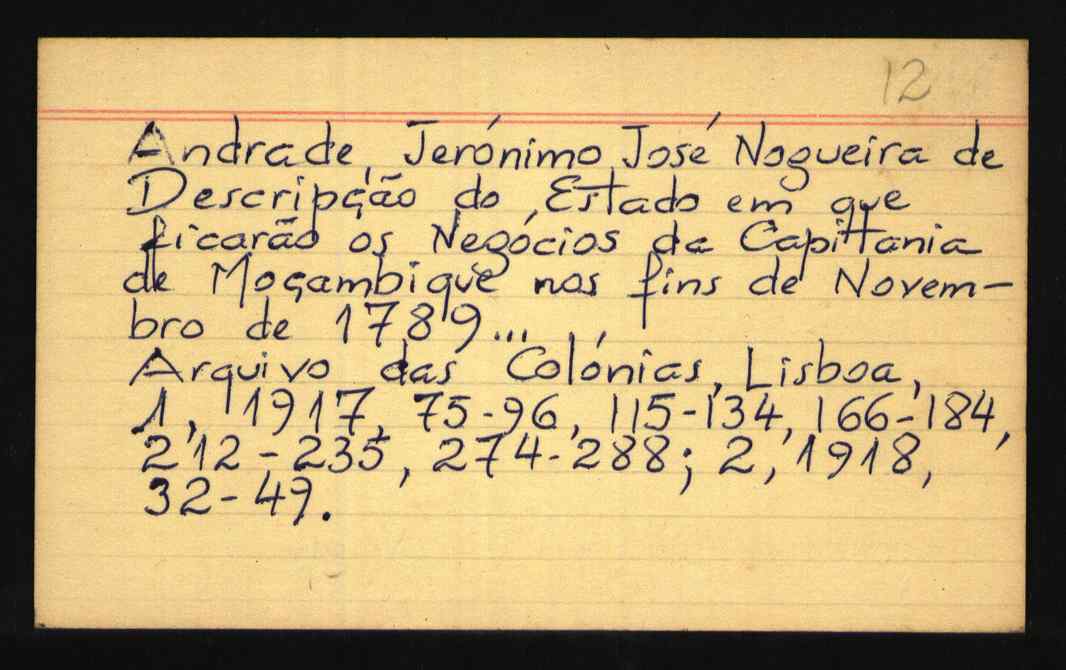 12
Andrade, Jerónimo José Nogueira de
Descripção do Estado em que
ficarão os Negócios da Capittania
de Moçambique nos fins de Novem-
bro de 1789...
Arquivo das Colónias, Lisboa,
1, 1917, 75-96, 115-134, 166-184,
212-235, 274-288; 2, 1918,
32-49.